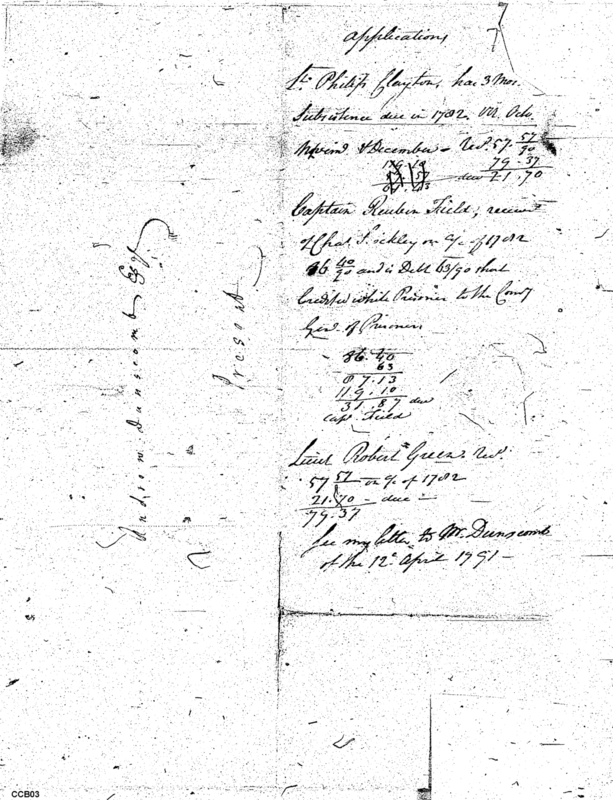 applications
Lt. Philip Clayton, has 3 Mos.
Subsistence due in 1782. viz. Octo.
Novem. & December – Recd. 57. 57/90
79. 37
due 21. 70
Captain Reuben Field, received
of Chas. on a/c of 1782
86 40/90 and is Debt 63/90 short
Credited while Prisoner to the Comy
Genl. of Prisoners
86. 40
63
87. 13
119. 10
31. 87 due
Capt. Field
Lieut Robert Green. Recd.
57 57 on a/c of 1782
21. 70 – due –
79. 37
See my letter to Mr. Dunscomb
of the 12th April 1791 –
Andrew Dunscomb Esqr.
Present
CCB03